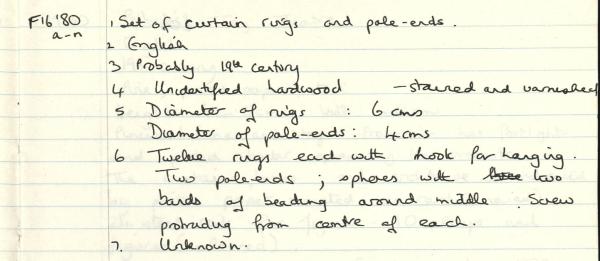 F16'80 1 Set of curtain rings and pole-ends.
a-n 2 English
3 Probably 19th century
4 Unidentified hardwood — stained and varnished
5 Diameter of rings : 6 cms
Diameter of pole-ends : 4 cms
6 Twelve rings each with hook for hanging.
Two pole-ends ; spheres with two
bands of beading around middle. Screw
protruding from centre of each.
7. Unknown.